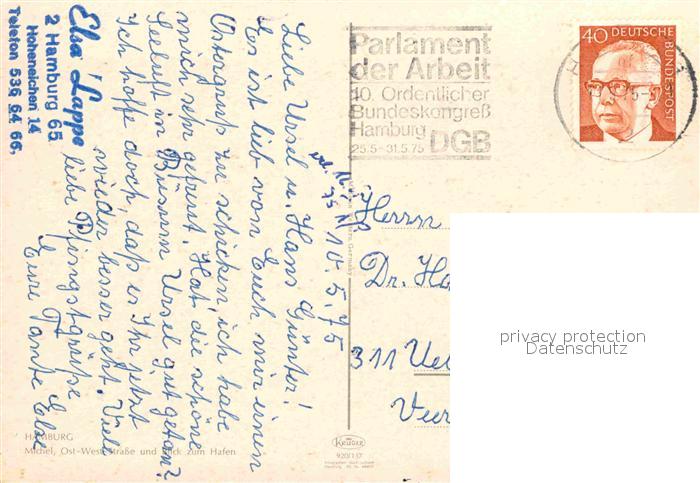 Elsa Lappe
2 Hamburg 65
Hoheneichen 14
Telefon 536 64 66,
Parlament
der Arbeit
10. Ordentlicher
Bundeskongreß
Hamburg
25.5-31.5.75 DGB
40 DEUTSCHE
BUNDESPOST
10.5.75
Liebe Ursel u. Hans Günter!
Es ist lieb von Euch mir einen
Ostergruß zu schicken, ich habe
mich sehr gefreut. Hat die schöne
Seeluft in Büsum Ursel gut getan?
Ich hoffe doch, daß es Ihr jetzt
wieder besser geht. Viele
liebe Pfingstgrüße
Eure Tante Else
Herrn
Dr. Ha
311 Uel
privacy protection
Datenschutz
HAMBURG
Michel, Ost-West-Straße und Blick zum Hafen
KRÜGER
920/137